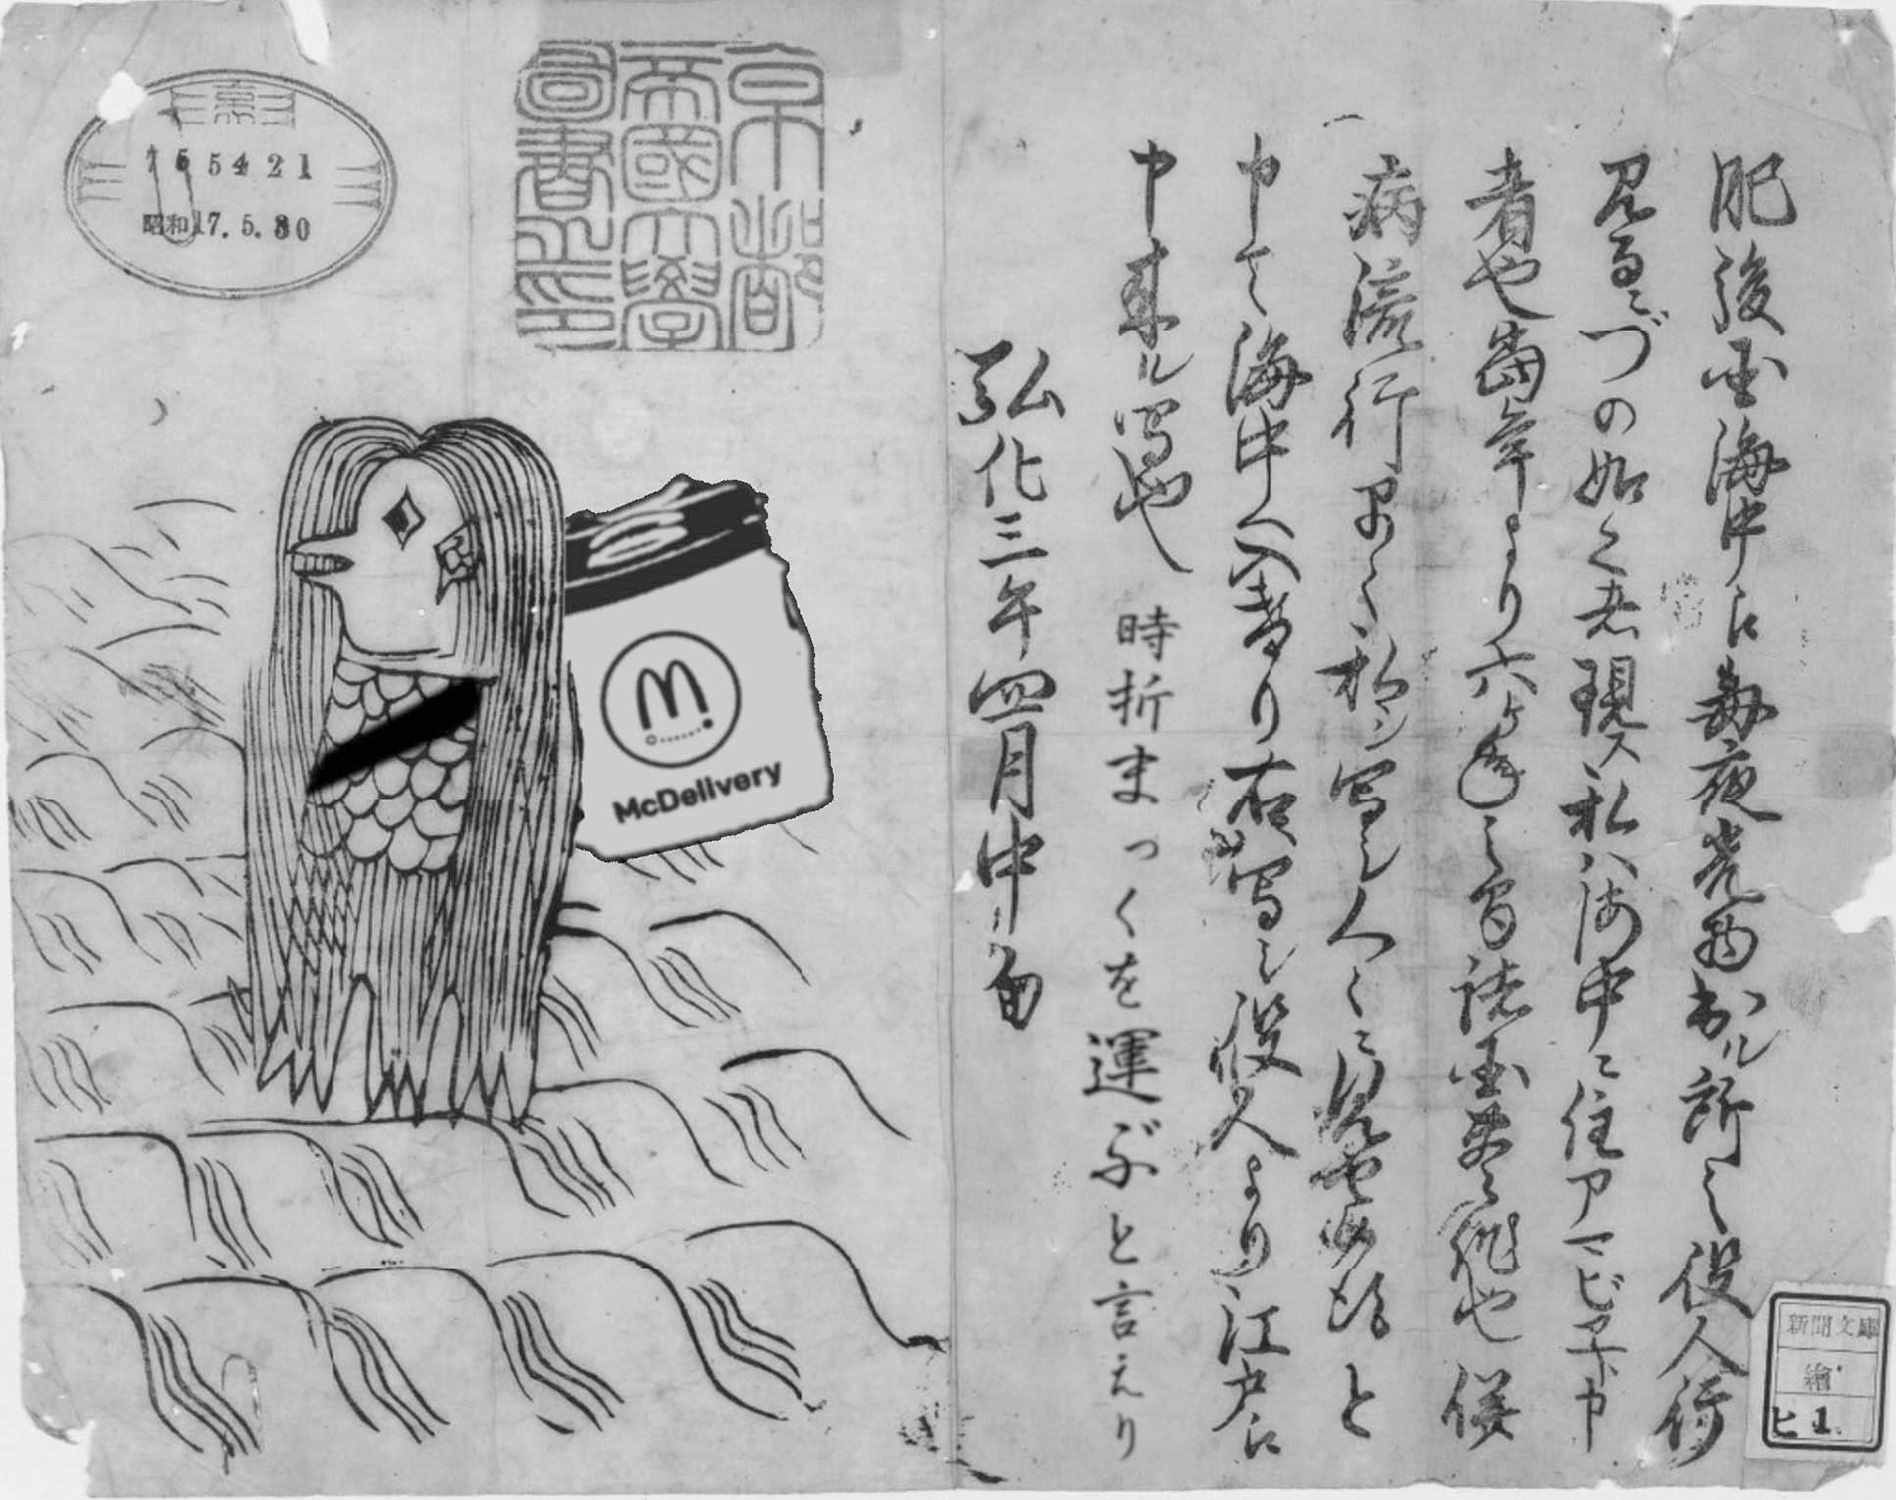 肥後国海中江毎夜光物出ル所之役人行
見るニづの如く之者現ス私ハ海中ニ住アマビヱト申
者也當年より六ヶ年之間諸国豊作也併
病流行早々私シ写シ人々ニ見セ候得と
申て海中へ入けり右写シ役人より江戸江
申来ル写也
時折まっくを運ぶと言えり
弘化三年四月中旬
京都
帝國大學
圖書之印
755421
昭和17.5.30
McDelivery
新聞文庫
繪
ヒ1.